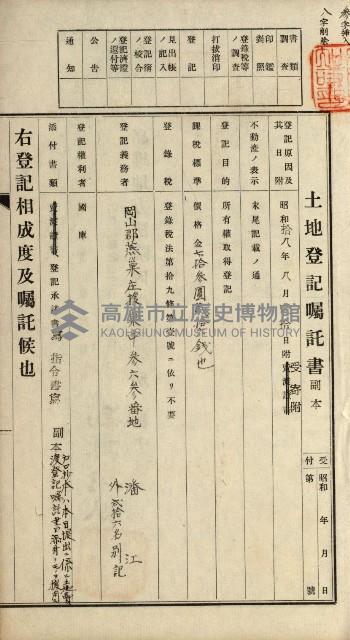 参字挿入
八字削除
書類調査
印鑑対照
登録税等ノ調査
打抜消印
登記
見出帳ノ記入
登記簿ノ校合
登記済證ノ還付等
公告
通知
土地登記嘱託書 副本
受付 昭和 年 月 日 第 號
登記原因及其日附 昭和拾八年八月 日附 受寄附
不動産ノ表示 末尾記載ノ通
登記目的 所有權取得登記
課税標準 價格金七拾参圓 拾錢也
登録税 登録税法第拾九條第壹號ニ依リ不要
登記義務者 岡山郡燕巢庄 参六参番地
潘江
外貳拾六名別記
登記權利者 國庫
添付書類 登記承諾書寫 指令書寫 副本
右登記相成度及嘱託候也
高雄市立歷史博物館
KAOHSIUNG MUSEUM OF HISTORY